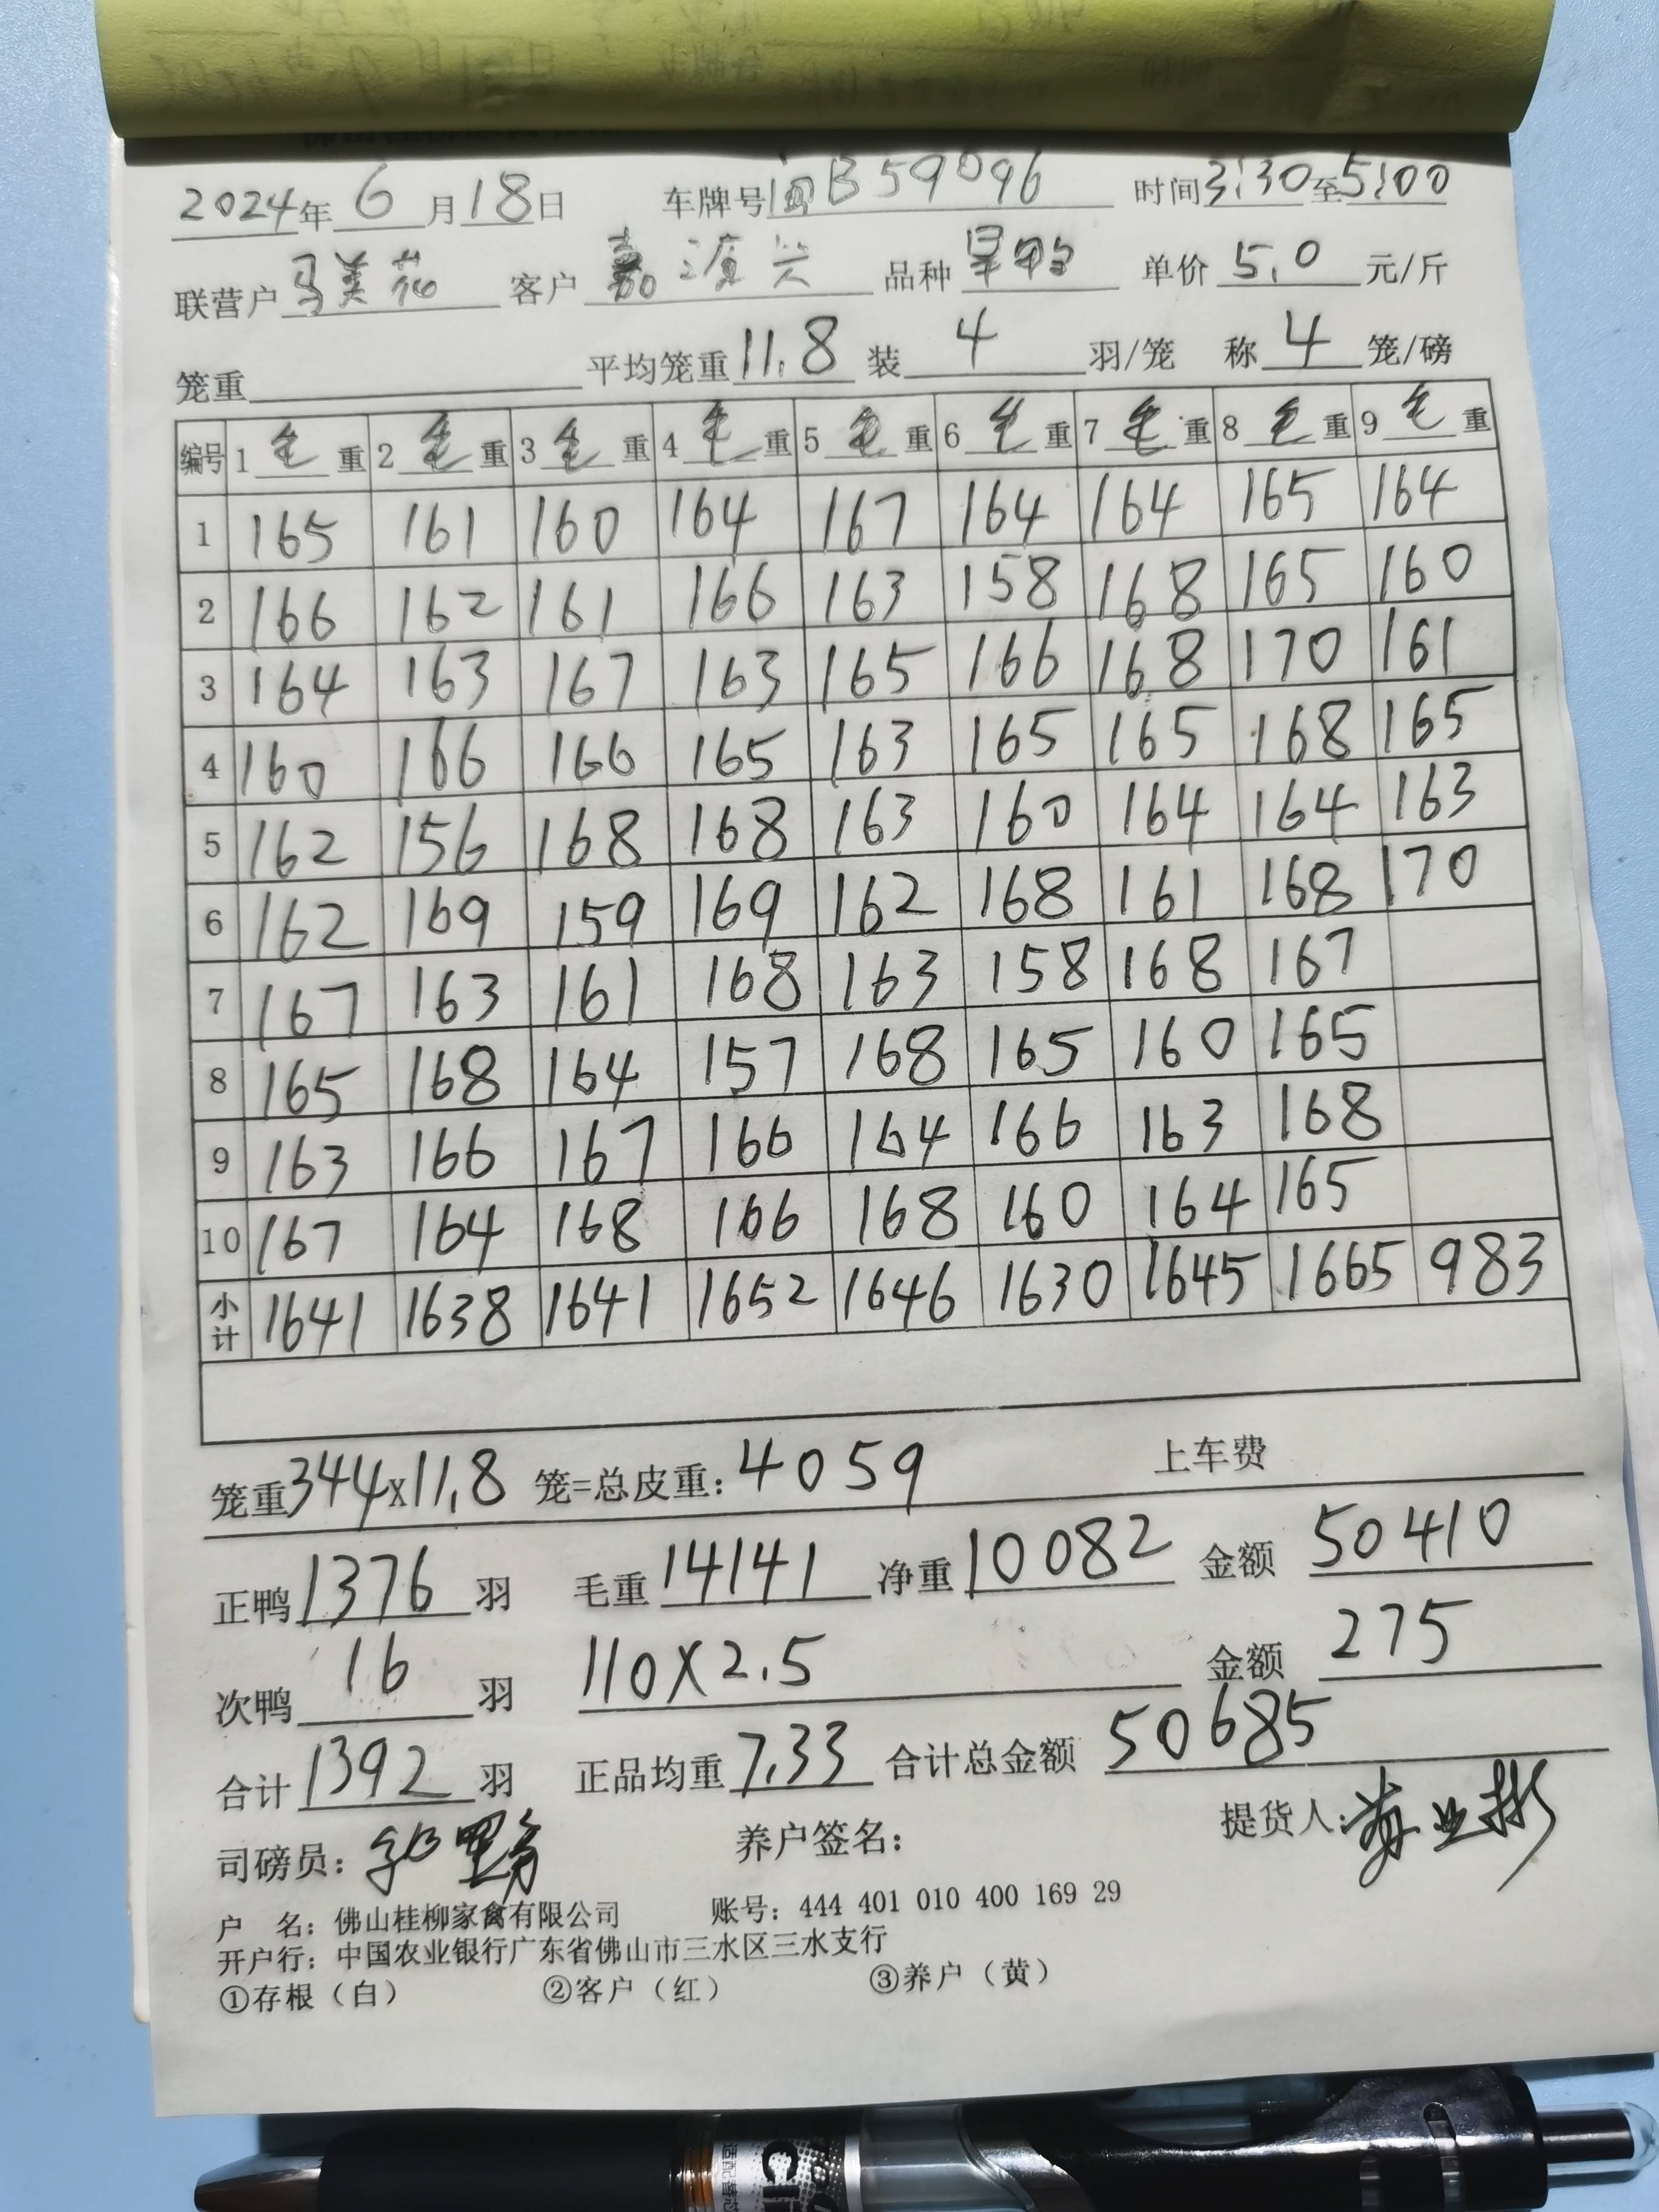 2024年 6 月 18 日 车牌号 闽B59096 时间 3:30 至 5:00
联营户 马美花 客户 嘉 兴 品种 旱鸭 单价 5.0 元/斤
笼重 平均笼重 11.8 装 4 羽/笼 称 4 笼/磅
编号 1 毛 重 2 毛 重 3 毛 重 4 毛 重 5 毛 重 6 毛 重 7 毛 重 8 毛 重 9 毛 重
1 165 161 160 164 167 164 164 165 164
2 166 162 161 166 163 158 168 165 160
3 164 163 167 163 165 166 168 170 161
4 160 166 166 165 163 165 165 168 165
5 162 156 168 168 163 160 164 164 163
6 162 169 159 169 162 168 161 168 170
7 167 163 161 168 163 158 168 167
8 165 168 164 157 168 165 160 165
9 163 166 167 166 164 166 163 168
10 167 164 168 166 168 160 164 165
小计 1641 1638 1641 1652 1646 1630 1645 1665 983
笼重 344 x 11.8 笼=总皮重: 4059 上车费
正鸭 1376 羽 毛重 14141 净重 10082 金额 50410
次鸭 16 羽 110X2.5 金额 275
合计 1392 羽 正品均重 7.33 合计总金额 50685
司磅员: 养户签名: 提货人: 黄业彬
户 名: 佛山桂柳家禽有限公司 账号: 444 401 010 400 169 29
开户行: 中国农业银行广东省佛山市三水区三水支行
①存根（白） ②客户（红） ③养户（黄）